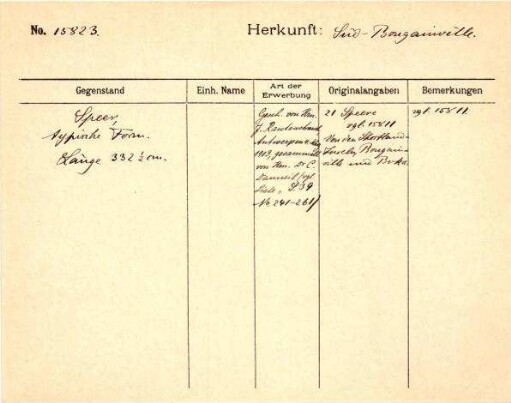 No. 15823.
Herkunft: Süd-Bougainville.
Gegenstand Einh. Name Art der Erwerbung Originalangaben Bemerkungen
Speer,
typische Form.
Länge 332 ½ cm.
Gesch. von Hrn.
J.
Antwerpen
1903, gesammelt
von Hrn. Dr. C.
vgl.
S. 39
No 241-261)
21 Speere
vgl. 15811
Von den Shortland-
Inseln, Bougain-
ville und Buka.
vgl. 15811.